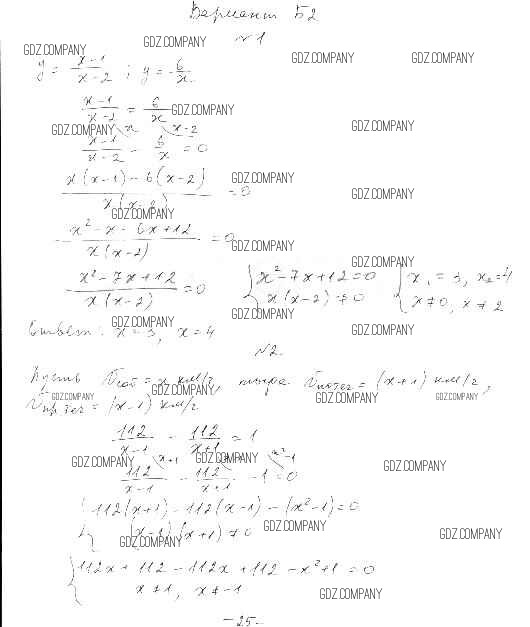 Вариант Б2
№1
y = x-1/x-2 ; y = 6/x
x-1/x-2 = 6/x
x-1/x-2 - 6/x = 0
x(x-1) - 6(x-2)/x(x-2) = 0
x² - x - 6x + 12/x(x-2) = 0
x² - 7x + 12/x(x-2) = 0 { x² - 7x + 12 = 0 { x₁ = 3, x₂ = 4
x(x-2) ≠ 0 x ≠ 0, x ≠ 2
Ответ: x = 3, x = 4
№2
Пусть = x км/ч, тогда = (x+1) км/ч,
= (x-1) км/ч
112/x-1 - 112/x+1 = 1
112/x-1 - 112/x+1 - 1 = 0
{ 112(x+1) - 112(x-1) - (x²-1) = 0
(x-1)(x+1) ≠ 0
{ 112x + 112 - 112x + 112 - x² + 1 = 0
x ≠ 1, x ≠ -1
- 25 -
GDZ.COMPANY